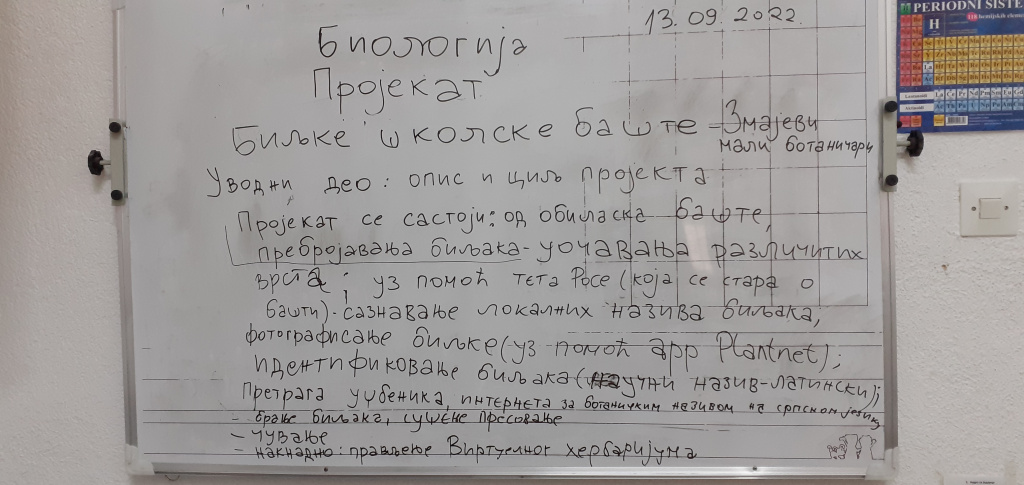 13.09.2022.
PERIODNI SISTE
H
118
Биологија
Пројекат
Биљке школске баште - Змајеви
мали ботаничари
Уводни део: опис и циљ пројекта
Пројекат се састоји: од обиласка баште,
пребројавања биљака - уочавања различитих
врста; уз помоћ тета Росе (која се стара о
башти) - сазнавање локалних назива биљака;
фотографисање биљке (уз помоћ app Plantnet);
идентификовање биљака (научни назив-латински);
Претрага уџбеника, интернета за ботаничким називом на српском језику
- брање биљака, сушење пресовање
- чување
- накнадно: прављење Виртуелног хербаријума